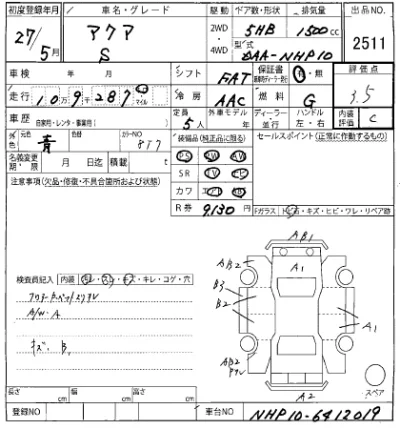 初度登録年月 車名・グレード 駆動 ドア数・形状 排気量 出品NO
27年 5月 アクア S 2WD ・ 4WD 5HB 1500cc 2511
型式 DAA-NHP10
車検 年 月 シフト FAT 保証書 有・無 評価点
走行 10万9千287 マイル 冷房 AAC 燃料 G 3.5
車歴 自家用・レンタ・事業用( ) 定員 5人 外車モデル 年 ディーラー・並行 ハンドル 左・右 内装評価 C
外色 元色 青 色替 カラーNO 8T7 装備品(純正品に限る) セールスポイント(正常に作動するもの)
名義変更期限 月 日迄 積載 t PS SW AW
SR TV ナビ
注意事項(欠品・修復・不具合箇所および状態) カワ エアB
R券 9,130円 Fガラス トビ石・キズ・ヒビ・ワレ・リペア跡
AB1
AB2 A1
B3
B2
A1
AB2
A2
スペア
検査員記入 内装 ヨレ・スレ・キズ・キレ・コゲ・穴
A/W・A
キズ B1
長さ cm 幅 cm 高さ cm
登録NO 車台NO NHP10-6412019